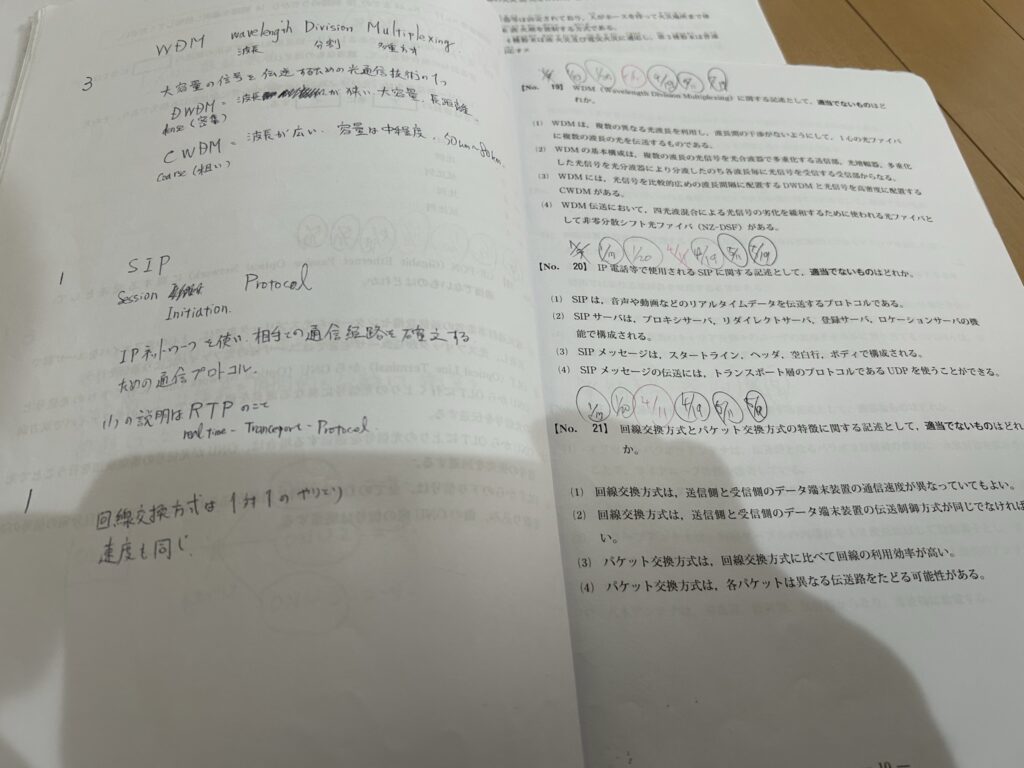 WDM wavelength Division Multiplexing
波長 分割 多重方式
3
大容量の信号を伝送するための光通信技術の1つ
DWDM = 波長が狭い、大容量、長距離
(密集)
CWDM = 波長が広い、容量は中程度、50km~80km.
coarse (粗い)
1
SIP
Session Protocol
Initiation.
IPネットワークを使い、相手との通信経路を確立する
ための通信プロトコル.
(1)の説明はRTPのこと
real time - Transport - Protocol.
1
回線交換方式は1対1のやりとり
速度も同じ.
[No. 19] WDM (Wavelength Division Multiplexing) に関する記述として、適当でないものはど
れか。
(1) WDMは、複数の異なる光波長を利用し、波長間の干渉がないようにして、1心の光ファイバ
に複数の波長の光を伝送するものである。
(2) WDMの基本構成は、複数の波長の光信号を光合波器で多重化する送信部、光増幅器、多重化
した光信号を光分波器により分波したのち各波長毎に光信号を受信する受信部からなる。
(3) WDMには、光信号を比較的広めの波長間隔に配置するDWDMと光信号を高密度に配置する
CWDMがある。
(4) WDM伝送において、四光波混合による光信号の劣化を緩和するために使われる光ファイバと
して非零分散シフト光ファイバ (NZ-DSF) がある。
1/19 1/20 4/11 4/19 5/11 5/19
[No. 20] IP電話等で使用されるSIPに関する記述として、適当でないものはどれか。
(1) SIPは、音声や動画などのリアルタイムデータを伝送するプロトコルである。
(2) SIPサーバは、プロキシサーバ、リダイレクトサーバ、登録サーバ、ロケーションサーバの機
能で構成される。
(3) SIPメッセージは、スタートライン、ヘッダ、空白行、ボディで構成される。
(4) SIPメッセージの伝送には、トランスポート層のプロトコルであるUDPを使うことができる。
4/11 4/19 5/11
[No. 21] 回線交換方式とパケット交換方式の特徴に関する記述として、適当でないものはどれ
か。
(1) 回線交換方式は、送信側と受信側のデータ端末装置の通信速度が異なっていてもよい。
(2) 回線交換方式は、送信側と受信側のデータ端末装置の伝送制御方式が同じでなければ
い。
(3) パケット交換方式は、回線交換方式に比べて回線の利用効率が高い。
(4) パケット交換方式は、各パケットは異なる伝送路をたどる可能性がある。